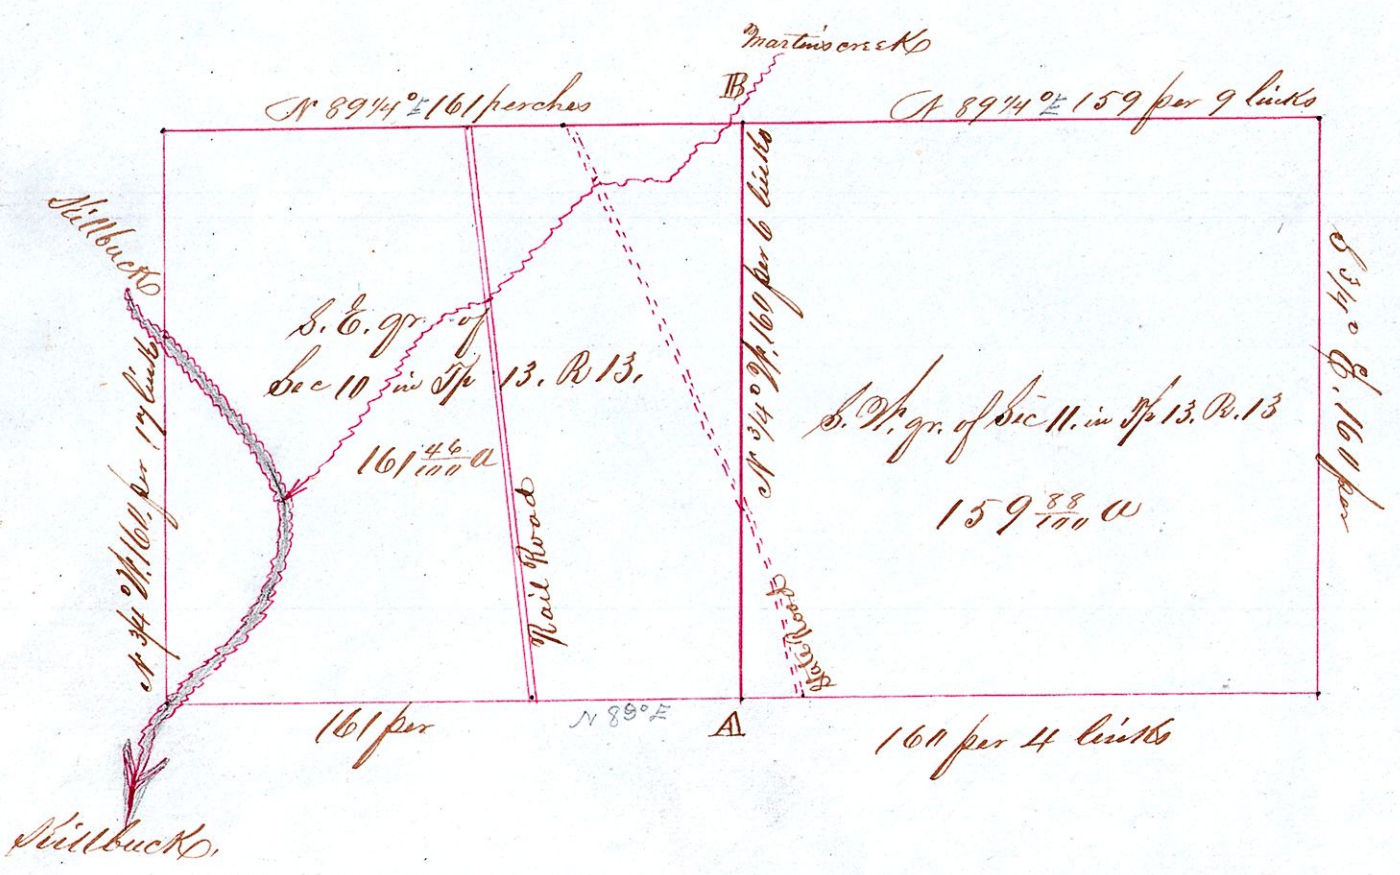 Martins creek
N 89 1/4° E 161 perches
B
N 89 1/4° E 159 per 9 links
Killbuck
N 3/4° W. 160 per 17 links
S. E. qr. of
Sec 10 in Tp 13. R 13.
161 46/100 a
Rail Road
N 3/4° W. 160 per 6 links
State Road
S. W. qr. of Sec 11. in Tp 13. R. 13
159 88/100 a
S 3/4° E. 160 per
161 per
N 89° E
A
160 per 4 links
Killbuck.